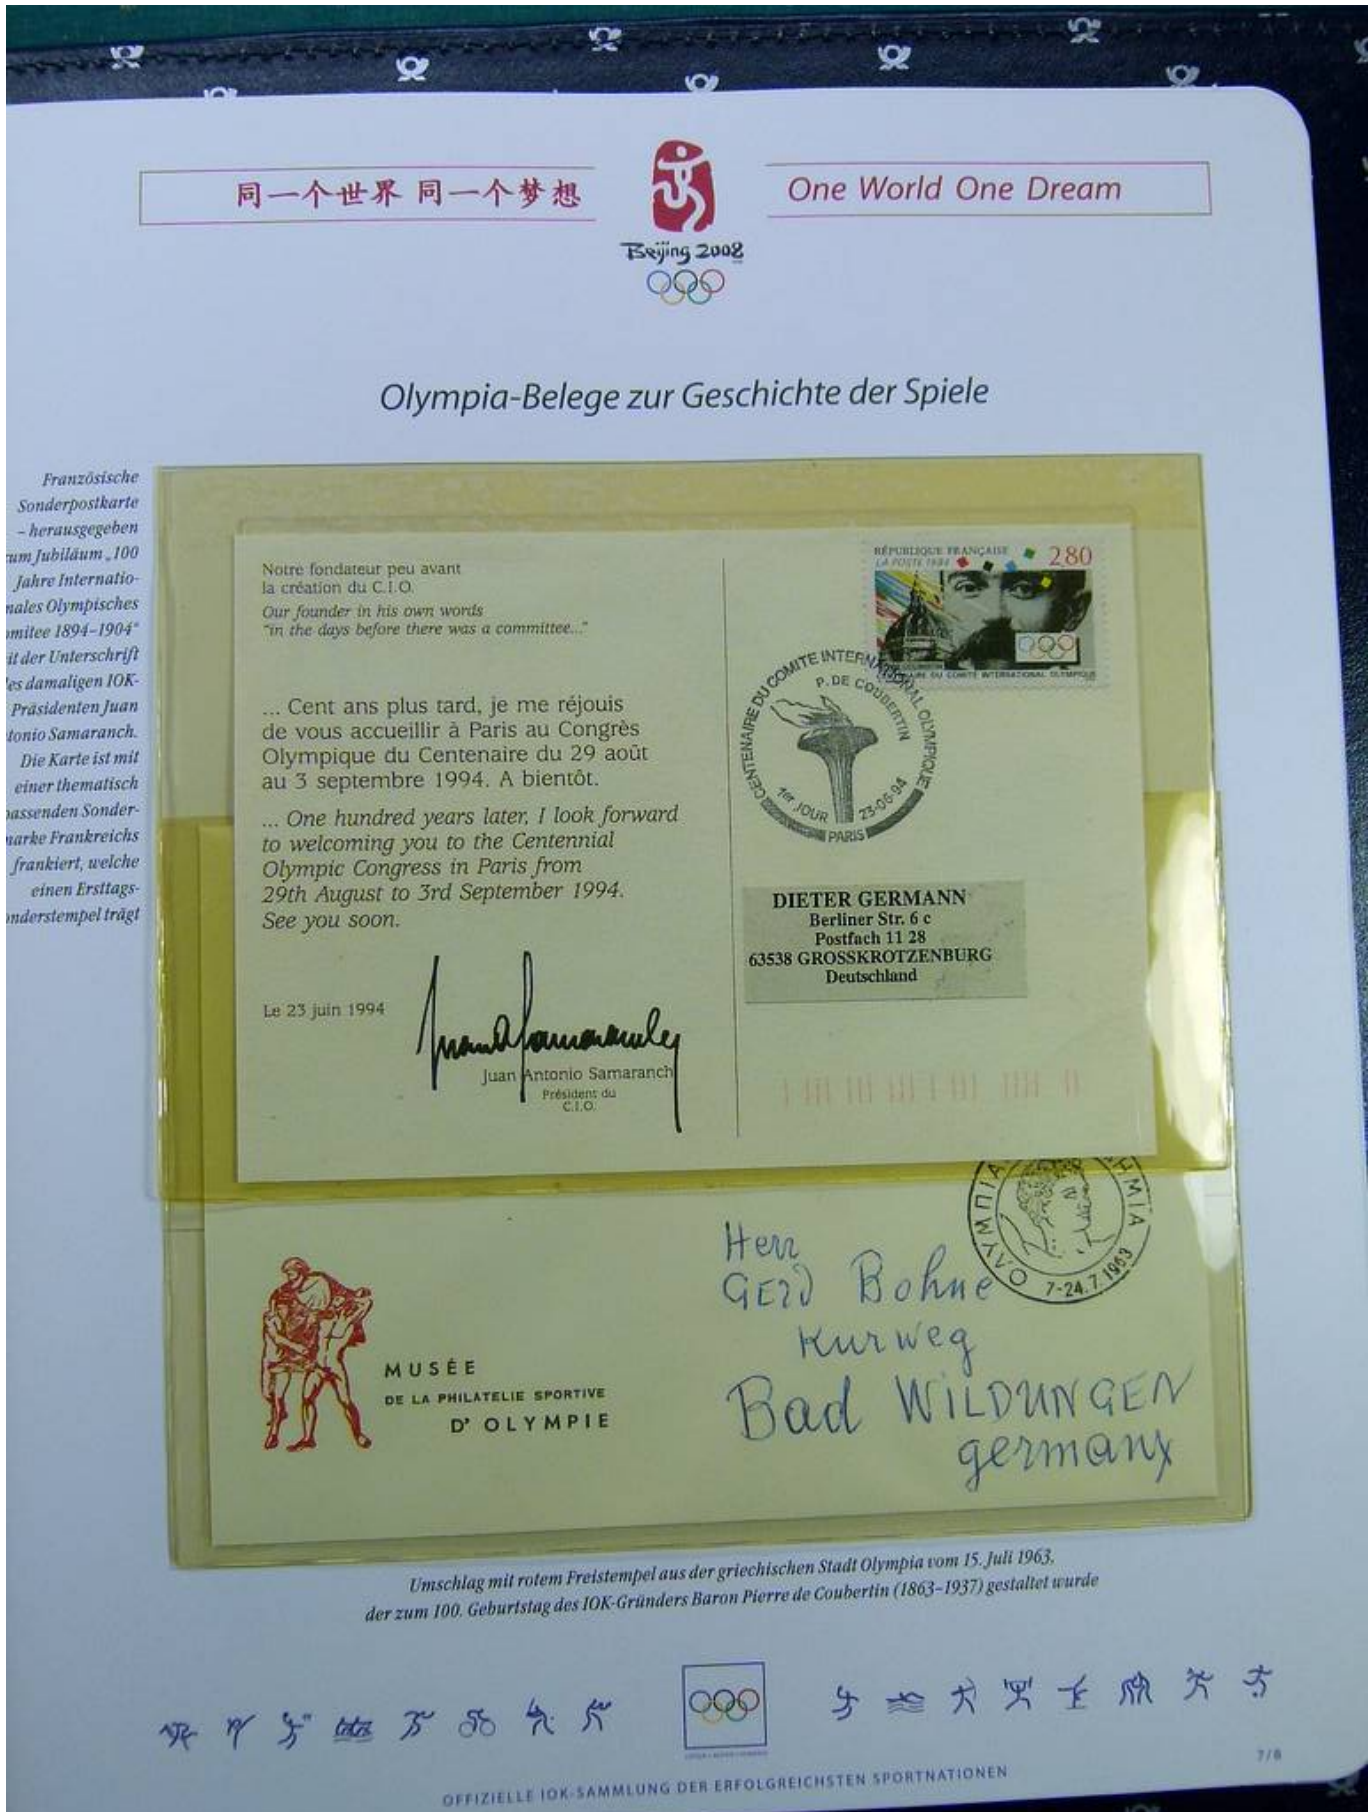 同一个世界 同一个梦想
One World One Dream
Beijing 2008
Olympia-Belege zur Geschichte der Spiele
Französische
Sonderpostkarte
– herausgegeben
um Jubiläum „100
Jahre Internatio-
nales Olympisches
omitee 1894–1904“
it der Unterschrift
es damaligen IOK-
Präsidenten Juan
tonio Samaranch.
Die Karte ist mit
einer thematisch
passenden Sonder-
marke Frankreichs
frankiert, welche
einen Ersttags-
onderstempel trägt
Notre fondateur peu avant
la création du C.I.O.
Our founder in his own words
"in the days before there was a committee..."
... Cent ans plus tard, je me réjouis
de vous accueillir à Paris au Congrès
Olympique du Centenaire du 29 août
au 3 septembre 1994. A bientôt.
... One hundred years later, I look forward
to welcoming you to the Centennial
Olympic Congress in Paris from
29th August to 3rd September 1994.
See you soon.
Le 23 juin 1994
Juan Antonio Samaranch
Président du
C.I.O.
RÉPUBLIQUE FRANÇAISE 2,80
LA POSTE 1994
DU COMITÉ INTERNATIONAL OLYMPIQUE
CENTENAIRE DU COMITE INTERNATIONAL OLYMPIQUE
P. DE COUBERTIN
1er JOUR 23-06-94
PARIS
DIETER GERMANN
Berliner Str. 6 c
Postfach 11 28
63538 GROSSKROTZENBURG
Deutschland
ΟΛΥΜΠΙΑ ΗΜΙΑ
7-24.7.1963
MUSÉE
DE LA PHILATELIE SPORTIVE
D' OLYMPIE
Herr
GERD Bohne
Kurweg
Bad WILDUNGEN
germany
Umschlag mit rotem Freistempel aus der griechischen Stadt Olympia vom 15. Juli 1963,
der zum 100. Geburtstag des IOK-Gründers Baron Pierre de Coubertin (1863–1937) gestaltet wurde
7/8
OFFIZIELLE IOK-SAMMLUNG DER ERFOLGREICHSTEN SPORTNATIONEN